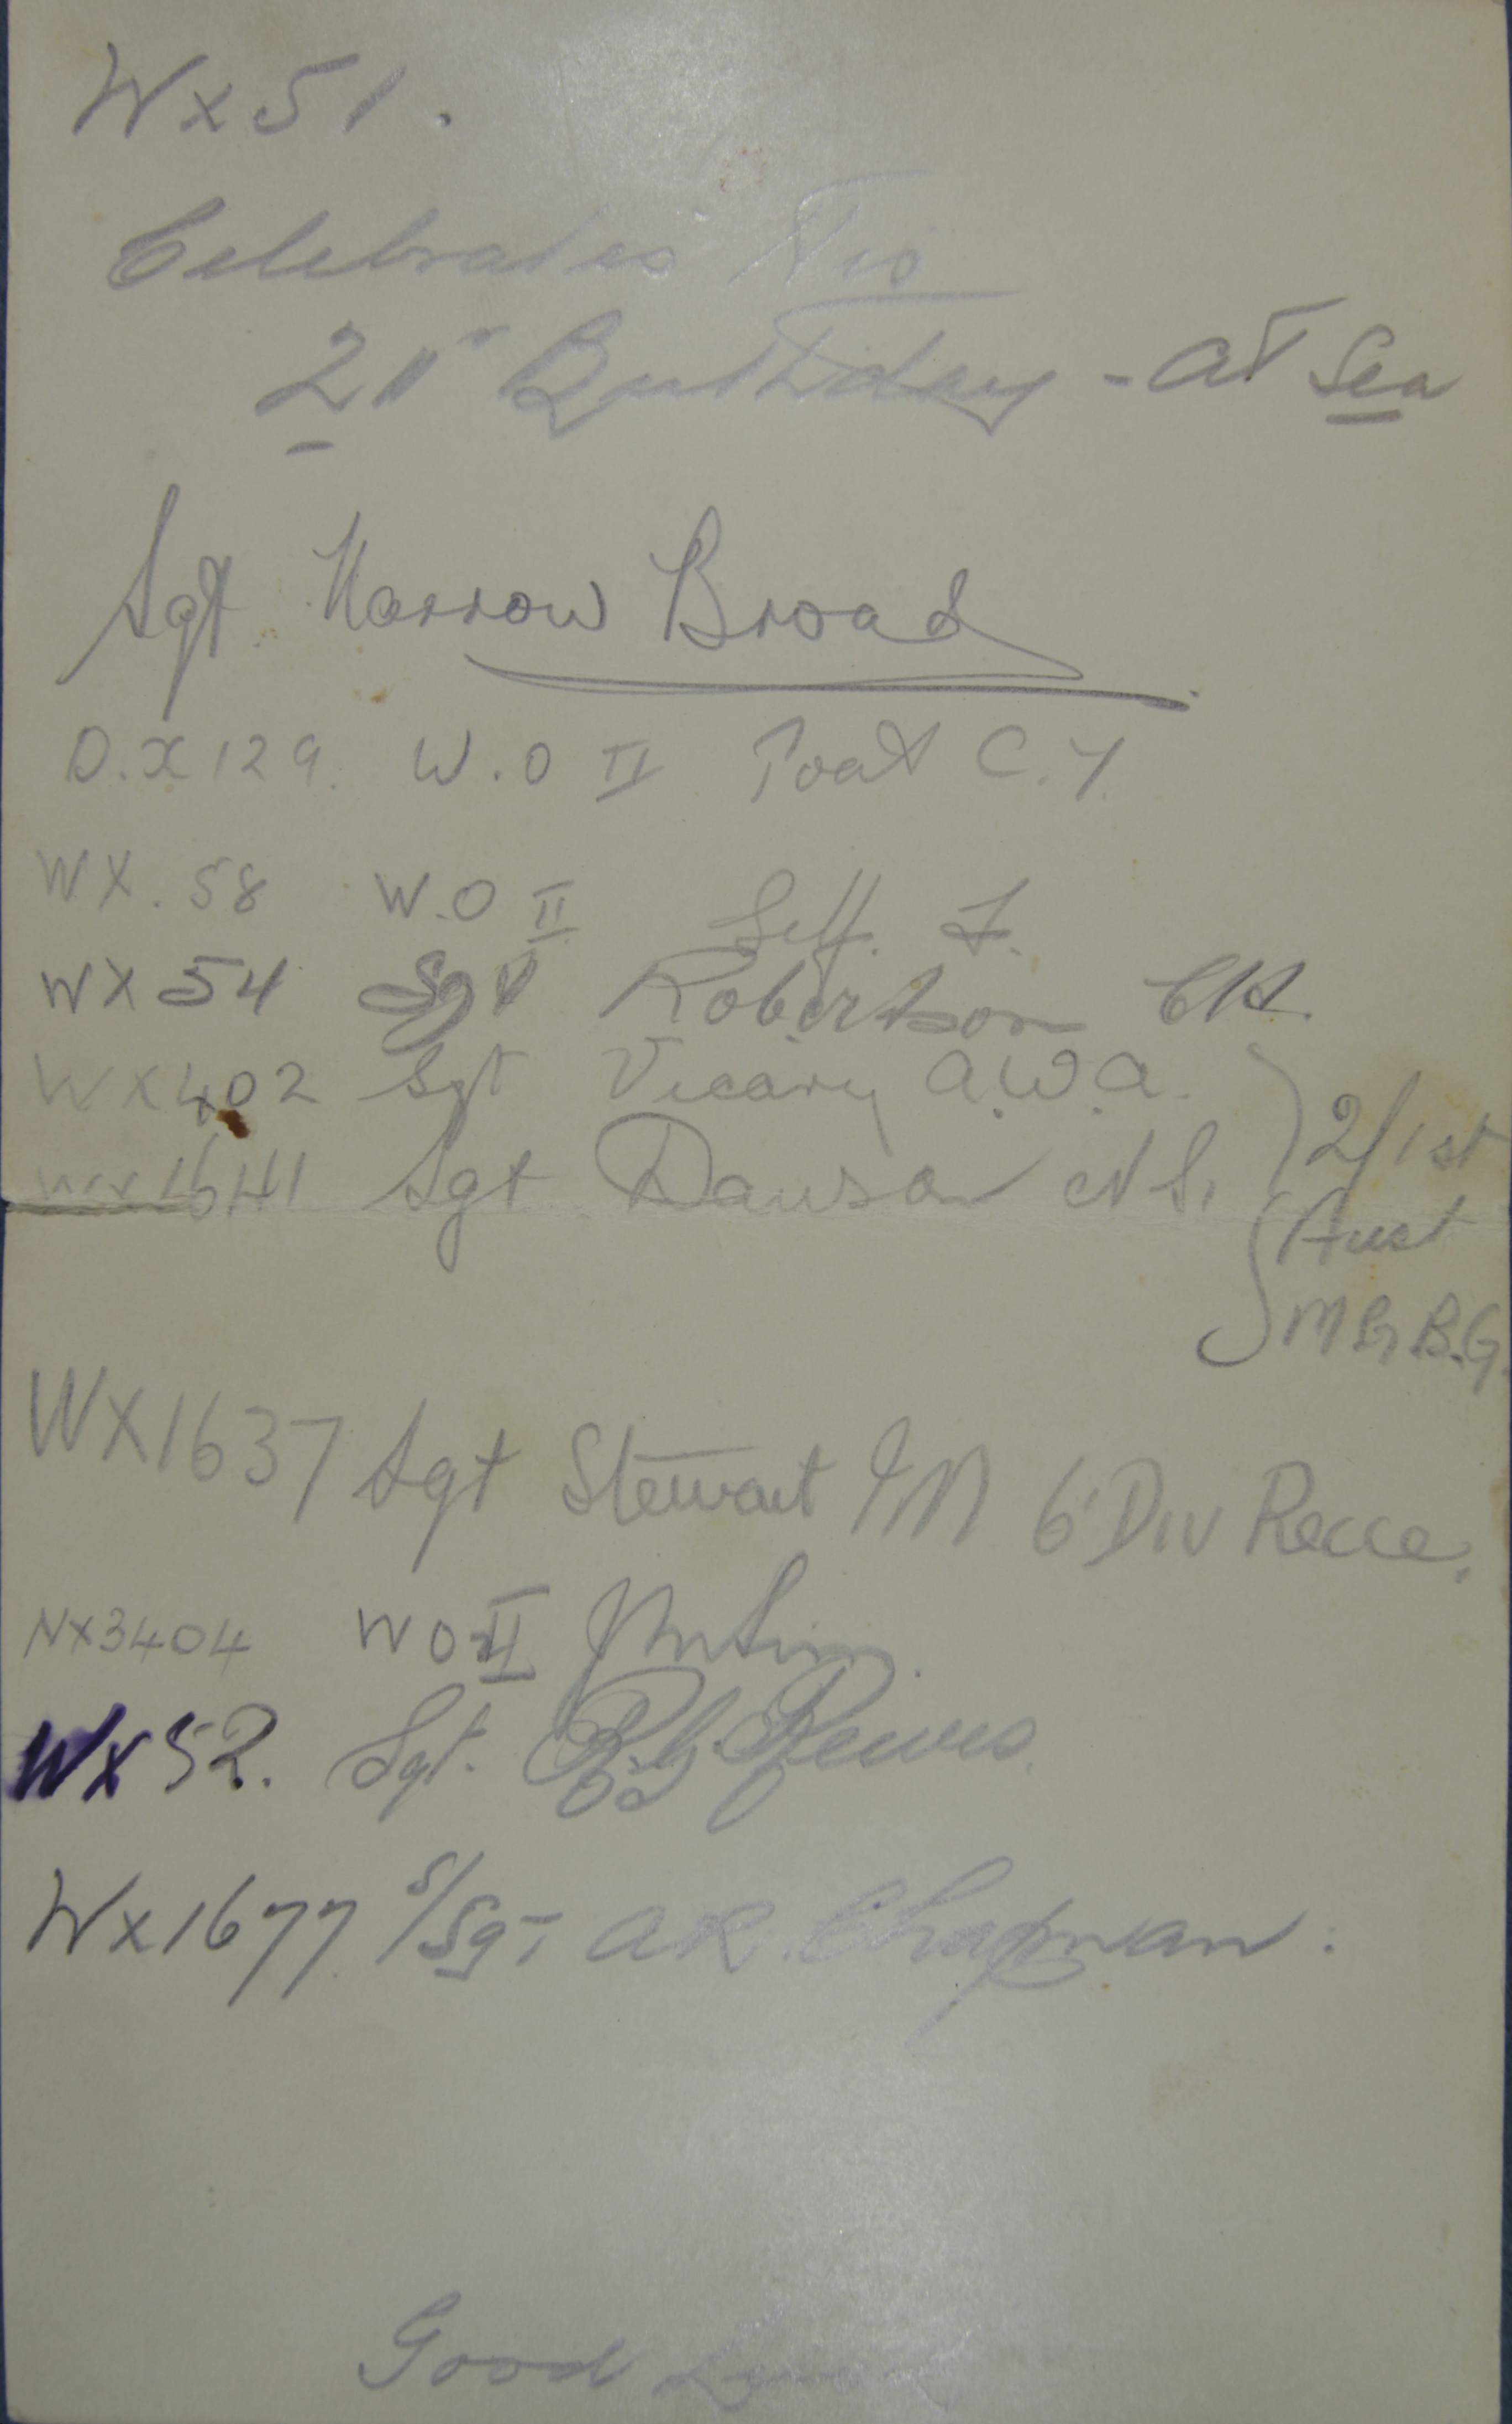 Wx51.
Celebrates His
21st Birthday - at Sea
Sgt Narrow Broad
D.X129. W.O II Poat C.Y.
WX.58 W.O II Self. F.
WX54 Sgt Robertson
WX402 Sgt Vicary A.W.A.
WX1641 Sgt Dawson N S.
2/1st
Aust
MG B.G.
WX1637 Sgt Stewart IM 6 Div Recce.
NX3404 WO II
Wx52. Sgt.
Wx1677 S/Sgt AR. Chapman.
Good Luck